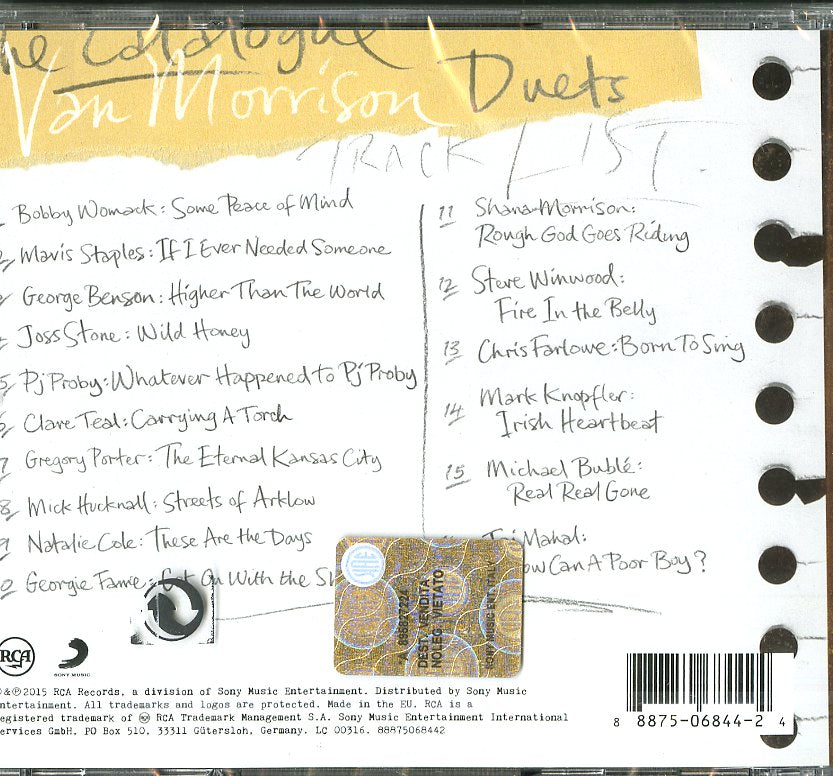 he Catalogue
Van Morrison Duets
TRACK LIST
Bobby Womack: Some Peace of Mind
Mavis Staples: If I Ever Needed Someone
George Benson: Higher Than The World
Joss Stone: Wild Honey
5 Pj Proby: Whatever Happened to Pj Proby
Clare Teal: Carrying A Torch
7 Gregory Porter: The Eternal Kansas City
8 Mick Hucknall: Streets of Arklow
9 Natalie Cole: These Are the Days
0 Georgie Fame: Get On With the Sh
11 Shana Morrison:
Rough God Goes Riding
12 Steve Winwood:
Fire In the Belly
13 Chris Farlowe: Born To Sing
14 Mark Knopfler:
Irish Heartbeat
15 Michael Bublé:
Real Real Gone
Taj Mahal:
ow Can A Poor Boy?
SIAE
DEST. VENDITA
NOLEG. VIETATO
SONY MUSIC ENT. ITALY
RCA
SONY MUSIC
&℗2015 RCA Records, a division of Sony Music Entertainment. Distributed by Sony Music
Entertainment. All trademarks and logos are protected. Made in the EU. RCA is a
egistered trademark of RCA Trademark Management S.A. Sony Music Entertainment International
ervices GmbH. PO Box 510, 33311 Gütersloh, Germany. LC 00316. 88875068442
8 8875-06844-2 4